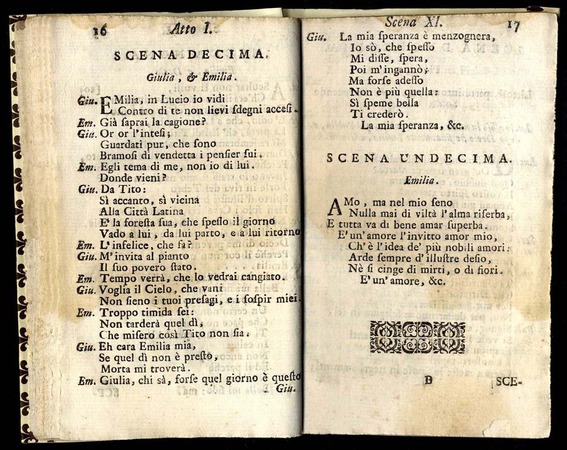 16 Atto I.
SCENA DECIMA.
Giulia, & Emilia.
Giu. EMilia, in Lucio io vidi
Contro di te non lievi sdegni accesi.
Em. Già saprai la cagione?
Giu. Or or l'intesi;
Guardati pur, che sono
Bramosi di vendetta i pensier sui.
Em. Egli tema di me, non io di lui.
Donde vieni?
Giu. Da Tito:
Sì accanto, sì vicina
Alla Città Latina
E' la foresta sua, che spesso il giorno
Vado a lui, da lui parto, e a lui ritorno
Em. L'infelice, che fa?
Giu. M'invita al pianto
Il suo povero stato.
Em. Tempo verrà, che lo vedrai cangiato.
Giu. Voglia il Cielo, che vani
Non sieno i tuoi presagi, e i sospir miei.
Em. Troppo timida sei:
Non tarderà quel dì,
Che misero così Tito non sia.
Giu. Eh cara Emilia mia,
Se quel dì non è presto,
Morta mi troverà.
Em. Giulia, chi sà, forse quel giorno è questo
Giu.
Scena XI. 17
Giu. La mia speranza è menzognera,
Io sò, che spesso
Mi disse, spera,
Poi m'ingannò;
Ma forse adesso
Non è più quella:
Sì speme bella
Ti crederò.
La mia speranza, &c.
SCENA UNDECIMA.
Emilia.
AMo, ma nel mio seno
Nulla mai di viltà l'alma riserba,
E tutta va di bene amar superba.
E'un'amore l'invitto amor mio,
Ch'è l'idea de' più nobili amori:
Arde sempre d'illustre desio,
Nè si cinge di mirti, o di fiori.
E'un'amore, &c.
B SCE-